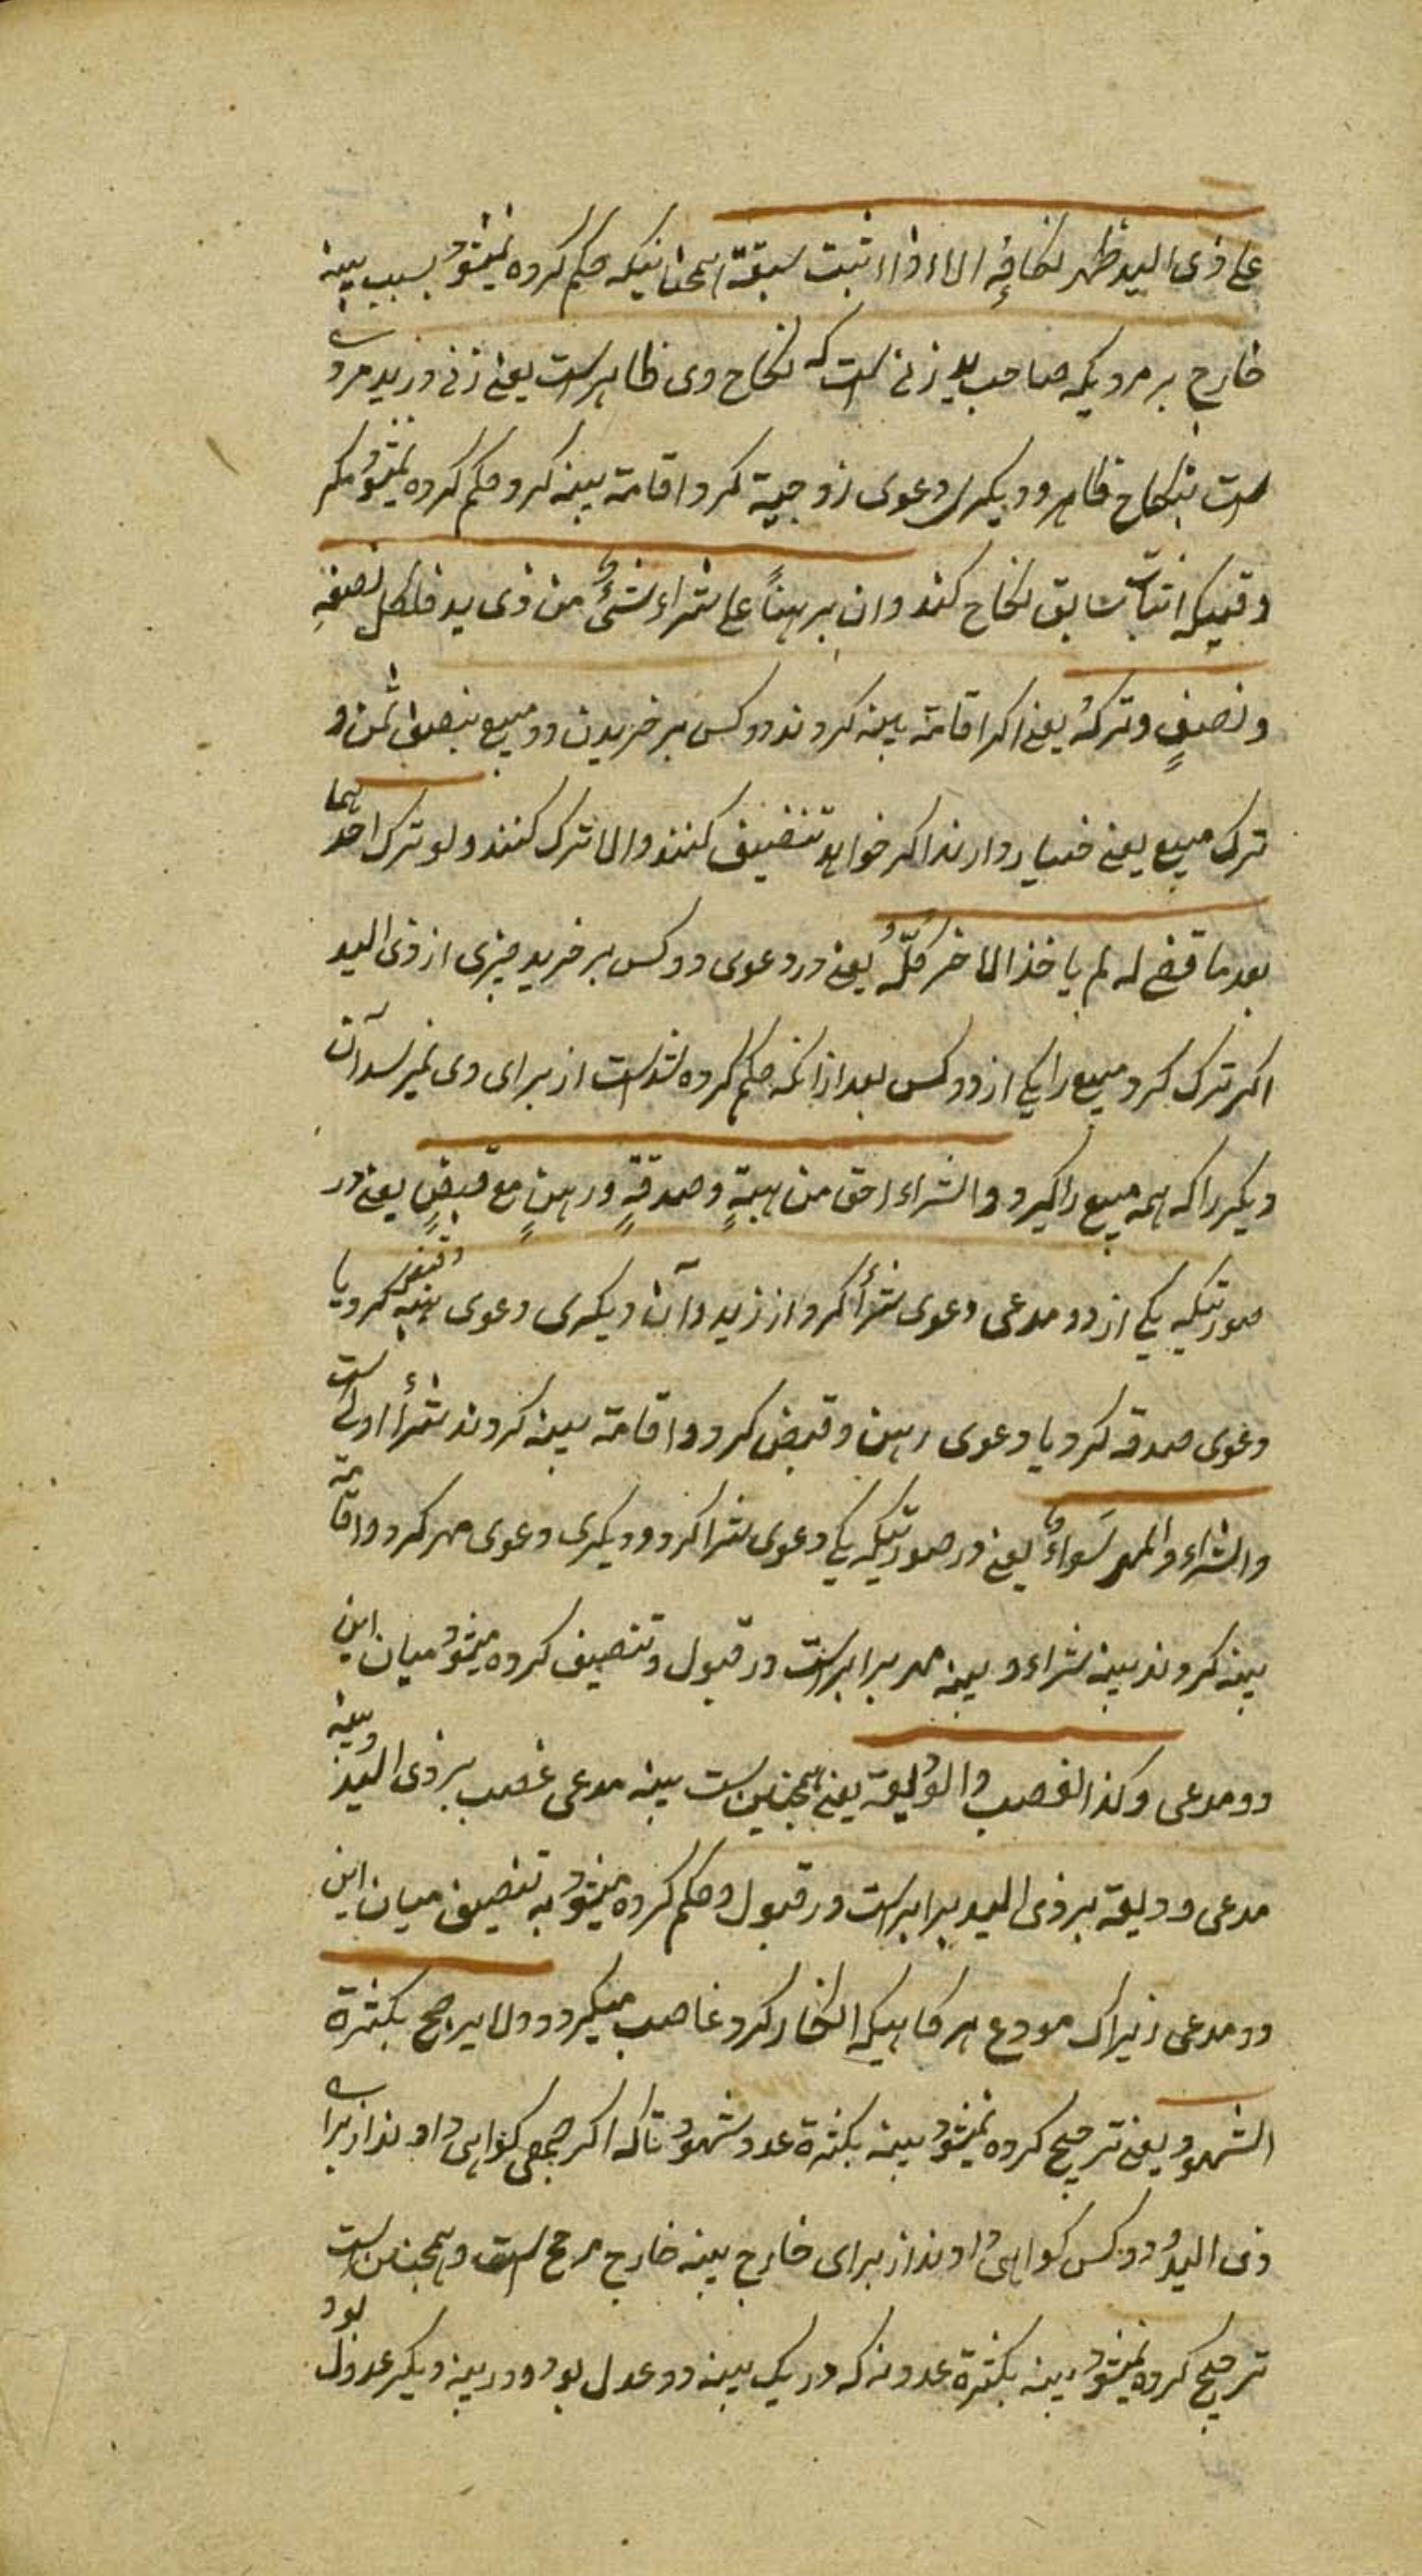 علی ذی الید ظهر نکاحه الا اذا اثبت سبقة همچنانیکه حکم کرده نمیشود بسبب بینه
خارج بر مردیکه صاحب ید زنی است که نکاح وی ظاهر است یعنی زنی در ید مردی
است بنکاح ظاهر و دیکری دعوی زوجیة کرد اقامة بینه کرد حکم کرده نمیشود مکر
وقتیکه اثبات سابق نکاح کند وان برهنا علی شراء شیء من ذی ید فلکل نصفه
بنصف وترکه یعنی اکر اقامة بینه کردند دو کس بر خریدن دو مبیع بنصف ثمن و
ترک مبیع یعنی خیار دارند اکر خواهد تنصیف کنند والا ترک کنند ولو ترک احدهما
بعد ما قضی له لم یاخذ الاخر کله یعنی در دعوی دو کس بر خرید چیزی از ذی الید
اکر ترک کرد مبیع را یکی از دو کس بعد از انکه حکم کرده شد است از برای وی نمیرسد آن
دیکر را که همه مبیع را کیرد والشراء احق من هبة وصدقة ورهن مع قبض یعنی در
صورتیکه یکی از دو مدعی دعوی شرأ کرد از زید وآن دیکری دعوی هبه وقبض کرد یا
دعوی صدقه کرد یا دعوی رهن وقبض کرد واقامة بینه کردند شرأ اولی است
والشراء والمهر سواء یعنی در صورتیکه یکی دعوی شرا کرد ودیکری دعوی مهر کرد واقامة
بینه کردند بینه شراء وبینه مهر برابر است در قبول وتنصیف کرده میشود میان این
دو مدعی وکذا الغصب والودیعة یعنی همچنین ست بینه مدعی غصب بر ذی الید وبینه
مدعی ودیعة بر ذی الید برابر است در قبول وحکم کرده میشود به تنصیف میان این
دو مدعی زیراک مودع هر کاهیکه انکار کرد غاصب میکردد ولا یرجح بکثرة
الشهود یعنی ترجیح کرده نمیشود بینه بکثرة عدد شهود تا که اکر جمعی کواهی دادند از برای
ذی الید ودو کس کواهی دادند از برای خارج بینه خارج مرجح است وهمچنین است
ترجیح کرده نمیشود بینه بکثرة عدو نه که در یک بینه دو عدل بود ودر بینه دیکر عدول بود